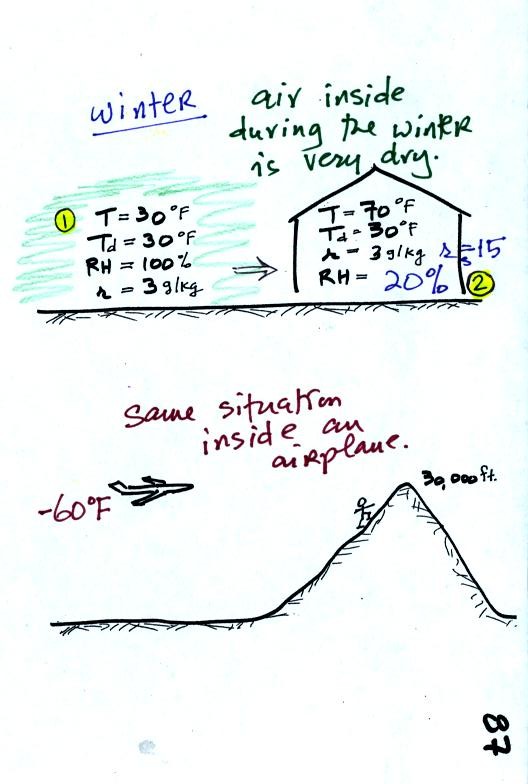 winter
air inside
during the winter
is very dry.
① T = 30°F
Td = 30°F
RH = 100%
r = 3 g/kg
T = 70°F
Td = 30°F
r = 3 g/kg rs = 15
RH = 20% ②
same situation
inside an
airplane.
-60°F
30,000 ft.
87